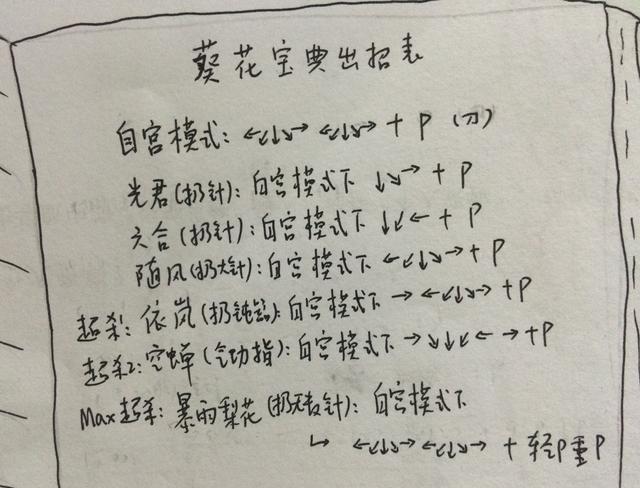 葵花宝典出招表
自宫模式: ←↙↓↘→ ←↙↓↘→ + P (刀)
光君(扔针): 自宫模式下 ↓↘→ + P
六合(扔针): 自宫模式下 ↓↙← + P
随风(扔大针): 自宫模式下 ←↙↓↘→ + P
超杀: 依岚(扔钝): 自宫模式下 → ←↙↓↘→ + P
超杀2: 空蝉(气功指): 自宫模式下 → ↘↓↙← → + P
Max超杀: 暴雨梨花(扔针): 自宫模式下
↳ ←↙↓↘→ ←↙↓↘→ + 轻P重P